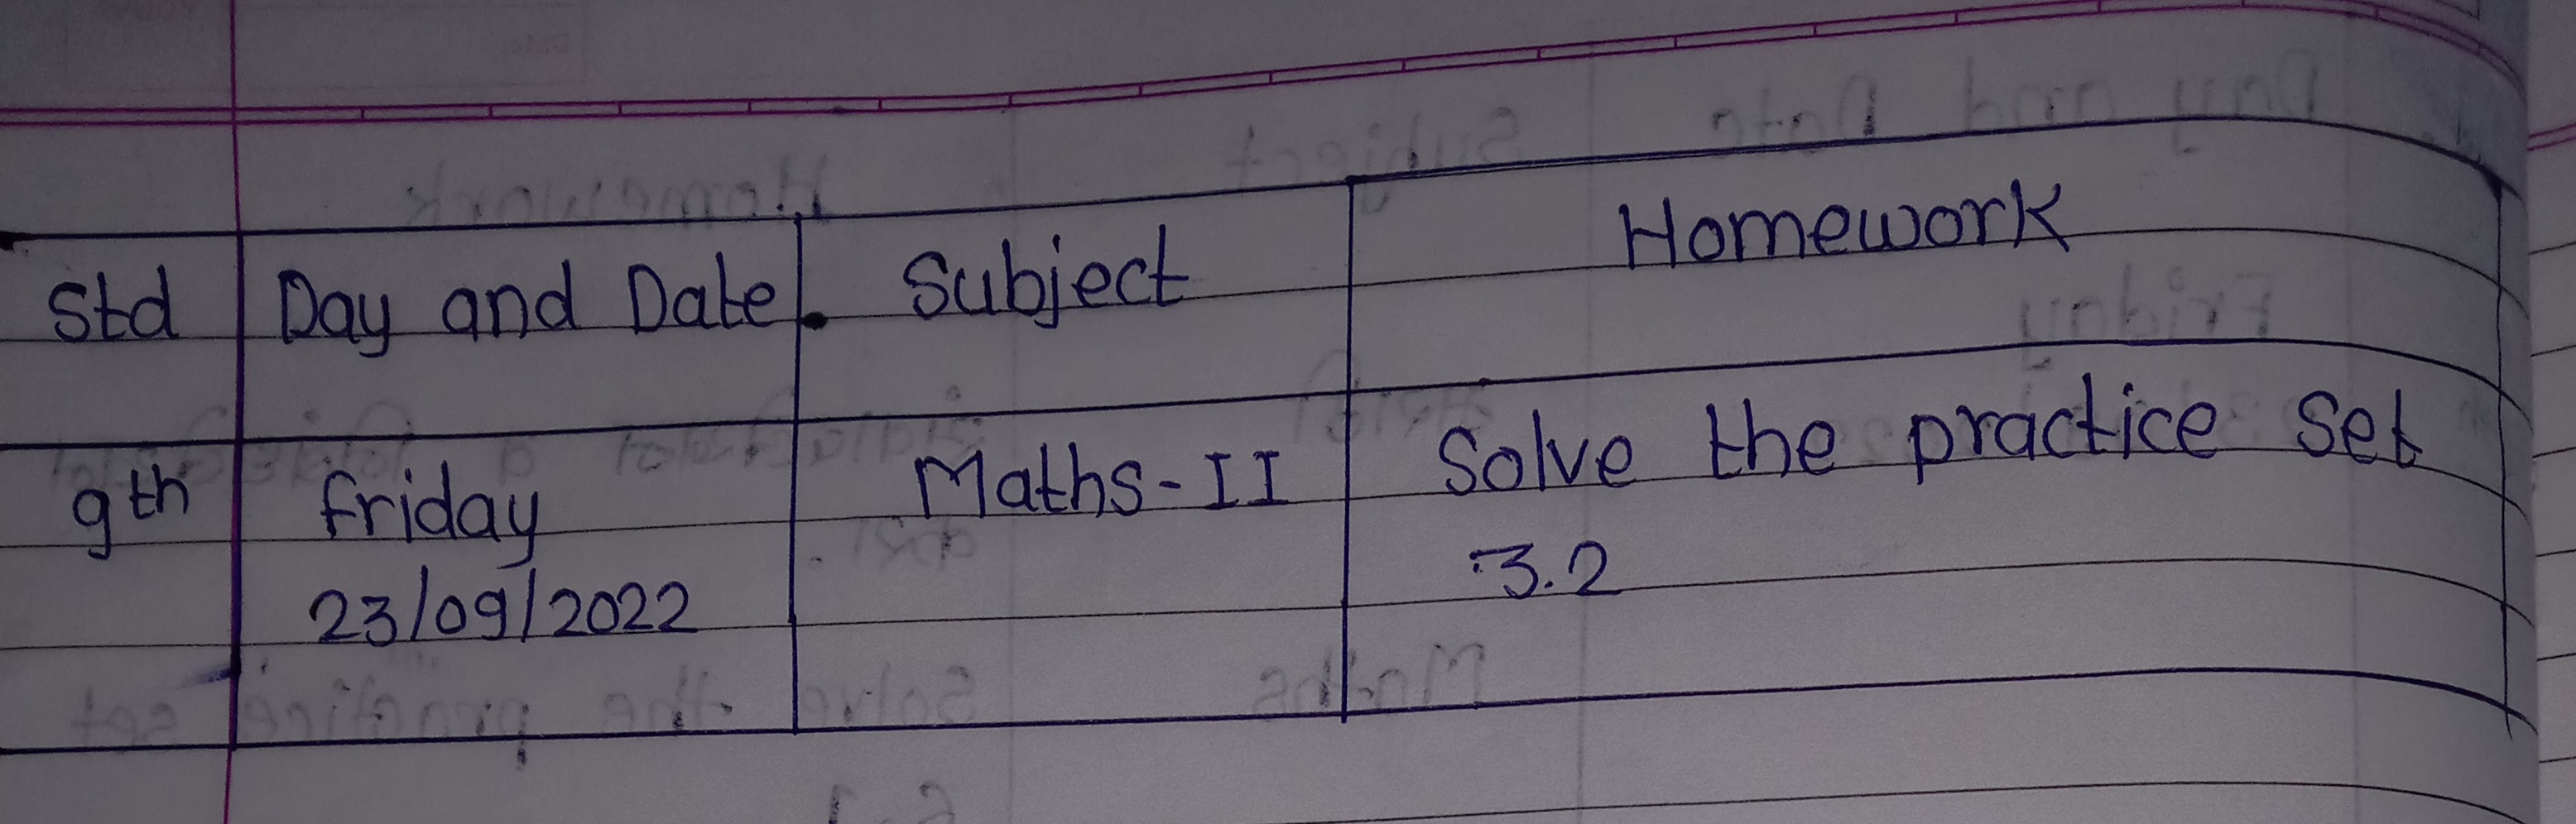 Std Day and Date. Subject Homework
9th Friday Maths-II Solve the practice set
23/09/2022 3.2